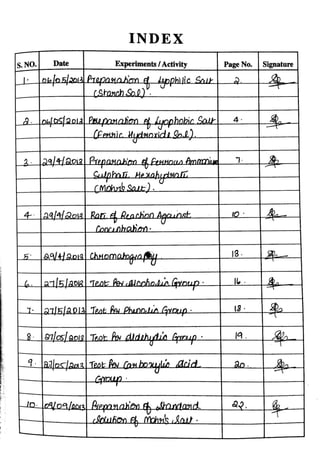 INDEX
S. NO. Date Experiments / Activity Page No. Signature
1. 06/05/2013 Preparation of Lyophilic Solr 2.
(Starch Sol).
2. 06/05/2013 Preparation of Lyophobic Solr 4.
(Ferric Hydroxide Sol).
3. 29/4/2013 Preparation of Ferrous Ammonium 7.
Sulphate Hexahydrate
(Mohr's Salt).
4. 29/4/2013 Rate of Reaction Against 10.
Concentration.
5. 29/4/2013 Chromatography 13.
6. 27/5/2013 Test for Alcoholic Group. 16.
7. 27/5/2013 Test for Phenolic Group. 18.
8. 27/05/2013 Test for Aldehydic Group. 19.
9. 27/05/2013 Test for Carboxylic Acid 20.
Group.
10. 09/09/2013 Preparation of Standard 22.
Solution of Mohr's Salt.